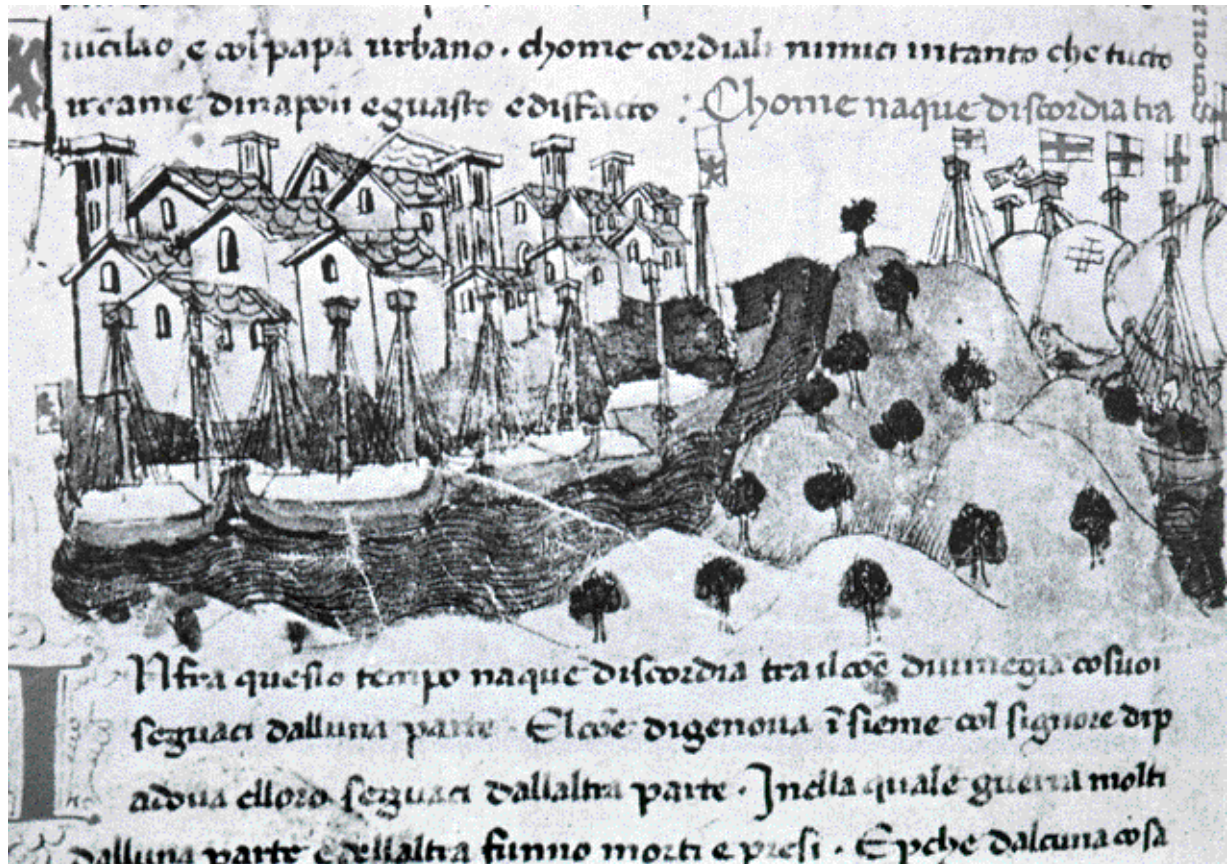 e col papa urbano . chome cordiali nimici intanto che tucto
reame dinapoli eguasto edisfacto : Chome naque discordia tra
INfra questo tempo naque discordia tra ilcoe diuinegia cosuoi
seguaci dalluna parte . Elcoe digenoua ĩsieme col signore dip
adoua elloro seguaci dallaltra parte . Inella quale guerra molti
dalluna parte e dellaltra funno morti e presi . Epche dalcuna cosa